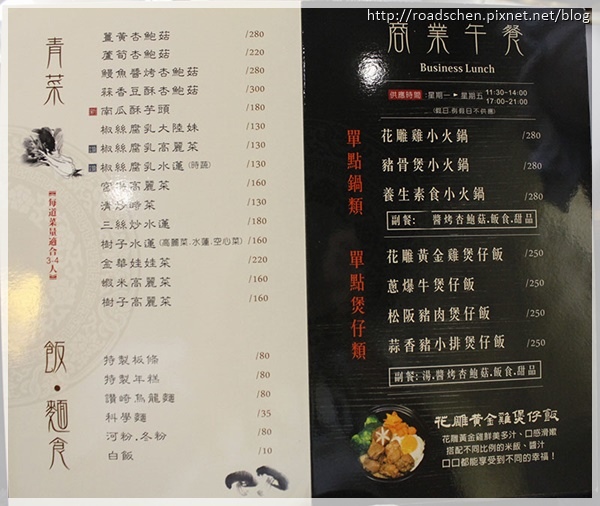 http://roadschen.pixnet.net/blog
青菜
薑黃杏鮑菇 /280
蘆筍杏鮑菇 /220
鰻魚醬烤杏鮑菇 /280
蒜香豆酥杏鮑菇 /300
南瓜酥芋頭 /180
椒絲腐乳大陸妹 /130
椒絲腐乳高麗菜 /130
椒絲腐乳水蓮(時蔬) /130
宮保高麗菜 /160
清炒時菜 /130
三絲炒水蓮 /180
樹子水蓮(高麗菜.水蓮.空心菜) /160
金華娃娃菜 /220
蝦米高麗菜 /160
樹子高麗菜 /160
每道菜量適合3-4人
飯・麵食
特製板條 /80
特製年糕 /80
讚崎烏龍麵 /80
科學麵 /35
河粉.冬粉 /80
白飯 /10
商業午餐
Business Lunch
供應時間:星期一►星期五 11:30-14:00
17:00-21:00
(假日.例假日不供應)
單點鍋類
花雕雞小火鍋 /280
豬骨煲小火鍋 /280
養生素食小火鍋 /280
副餐: 醬烤杏鮑菇.飯食.甜品
單點煲仔類
花雕黃金雞煲仔飯 /250
蔥爆牛煲仔飯 /250
松阪豬肉煲仔飯 /250
蒜香豬小排煲仔飯 /250
副餐:湯.醬烤杏鮑菇.飯食.甜品
花雕黃金雞煲仔飯
花雕黃金雞鮮美多汁、口感滑嫩
搭配不同比例的米飯、醬汁
口口都能享受到不同的幸福！